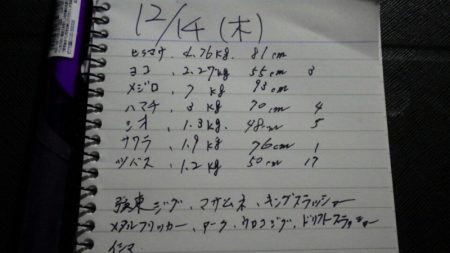 12/14 (木)
ヒラマサ. 4.76kg. 81cm
ヨコ. 2.27kg 55cm 8
メジロ. 7kg 93cm
ハマチ. 3kg 70cm 4
シオ. 1.3kg. 48cm 5
サワラ. 1.9kg 76cm 1
ツバス. 1.2kg 50cm 17
弾東ジグ、マサムネ、キングスラッシャー
メタルフリッカー、アーク、ウロコジグ、ドリフトスラッシャー
イシマ